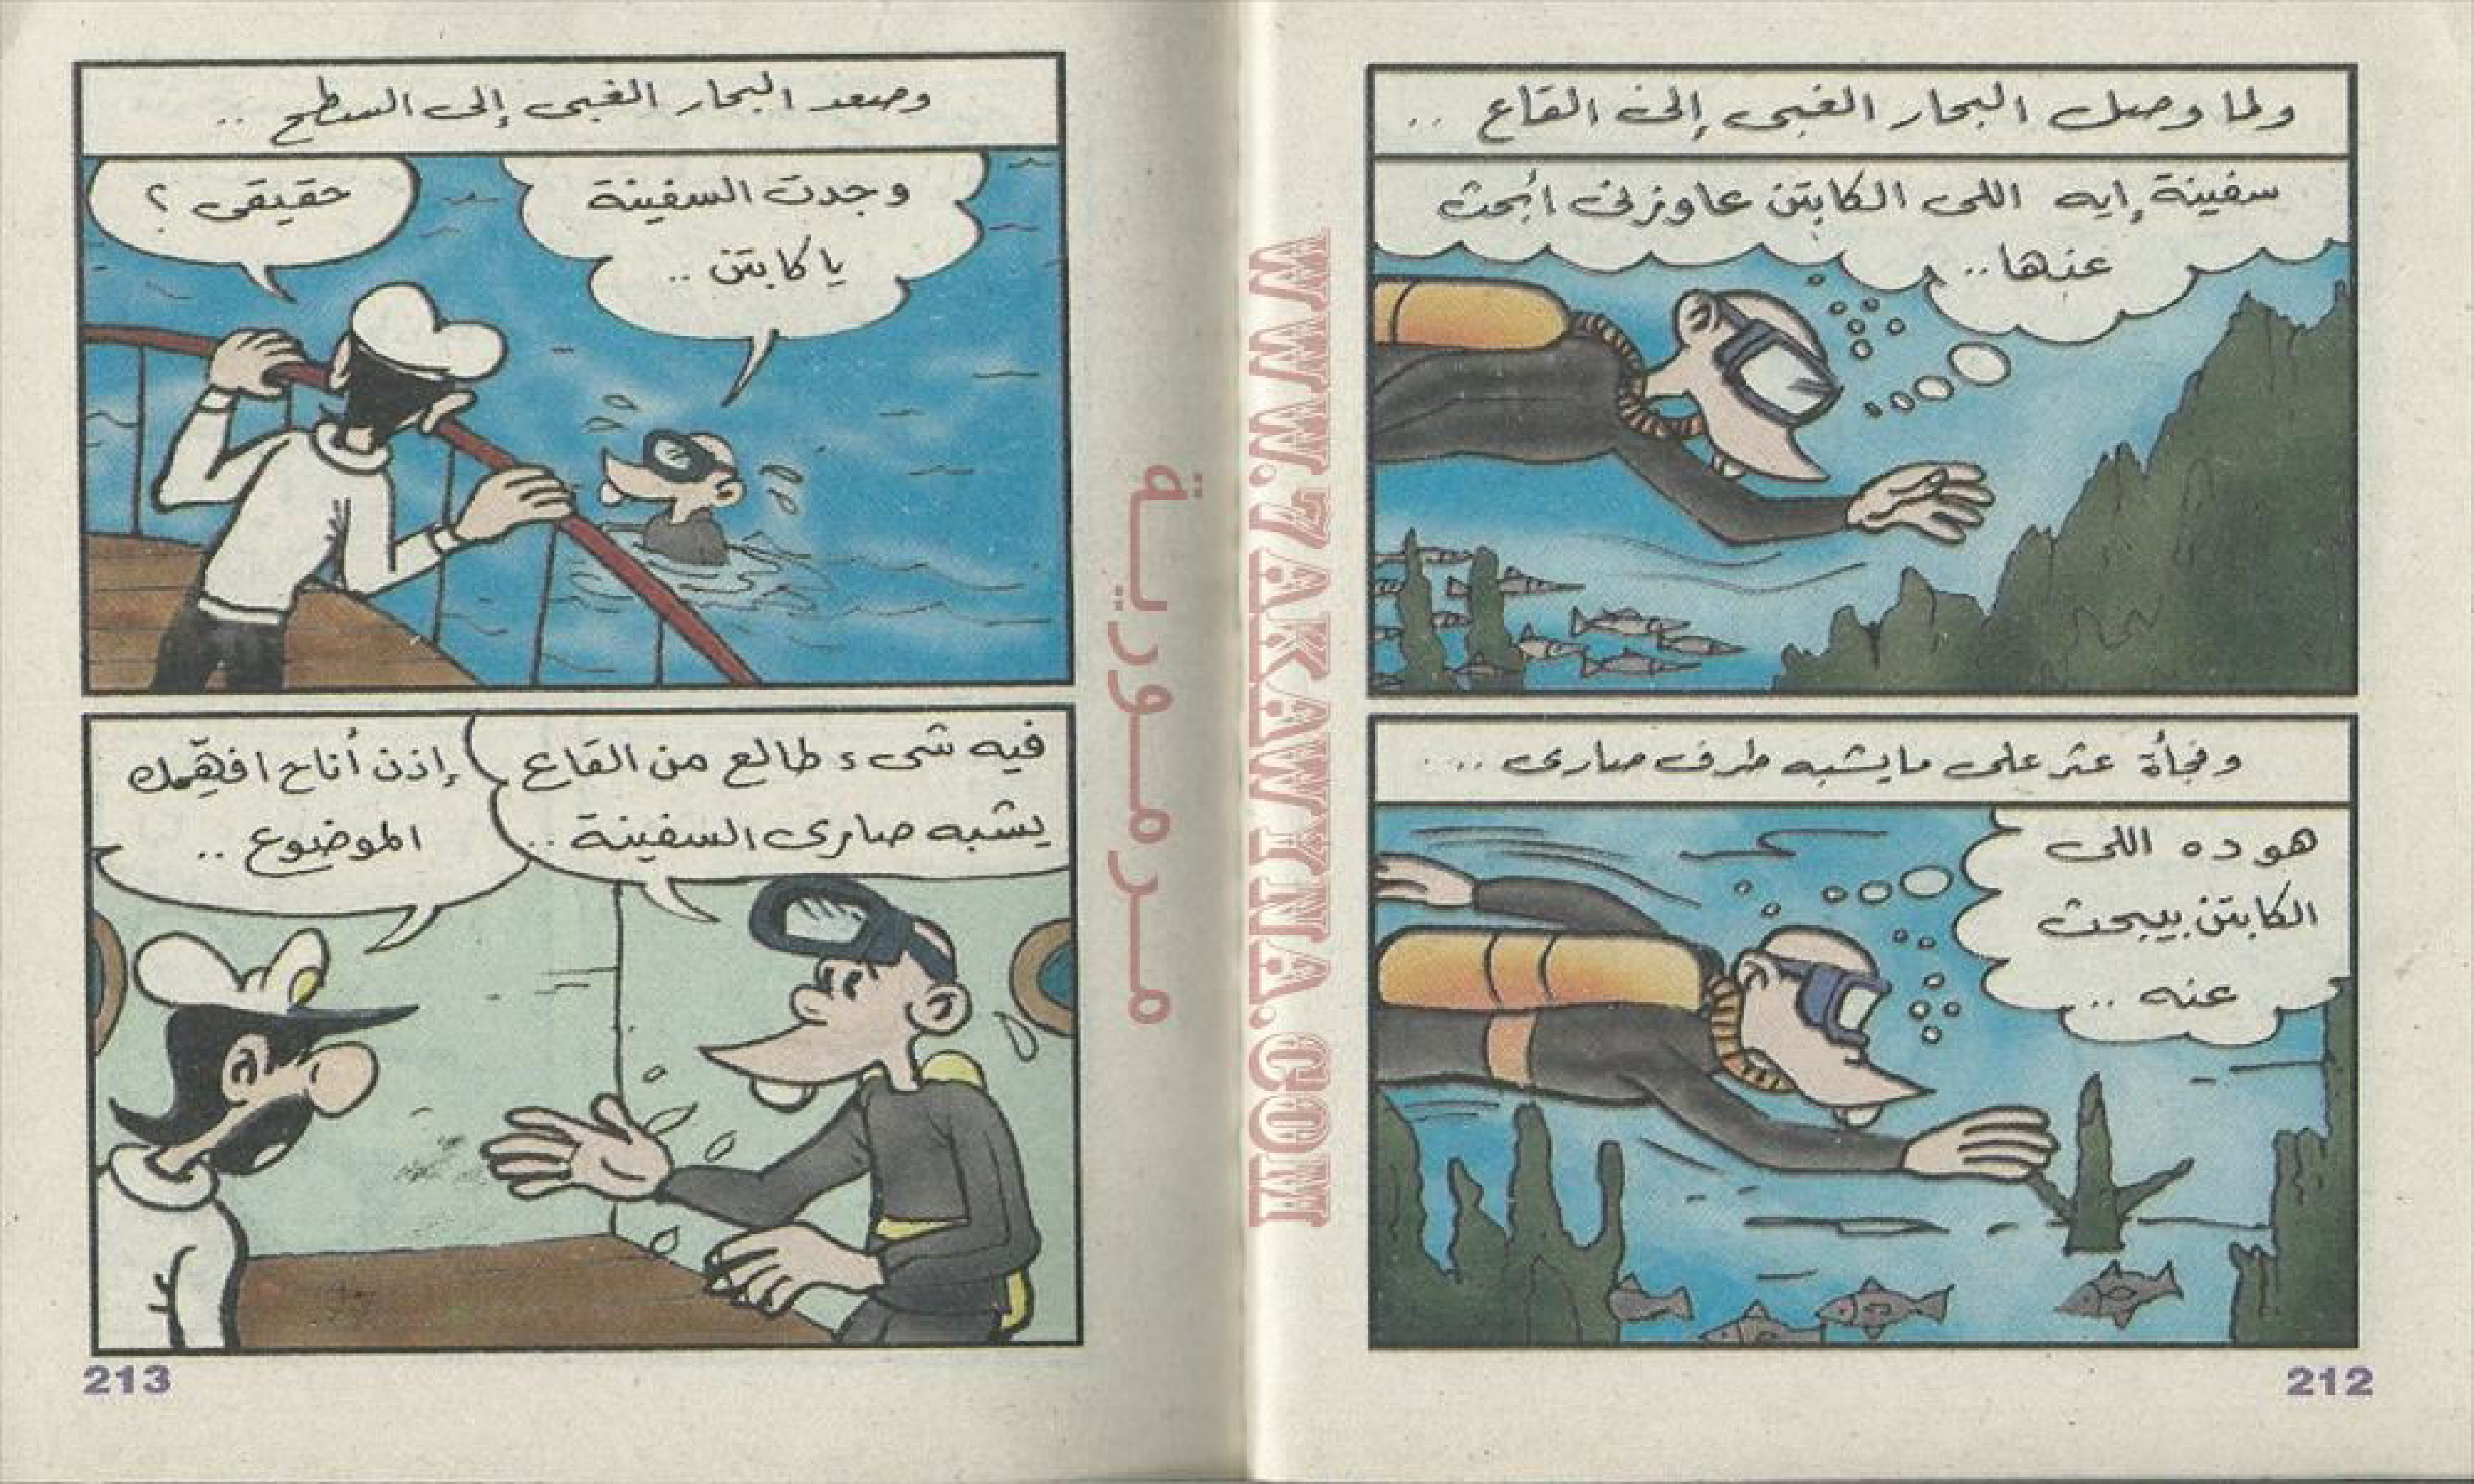 ولما وصل البحار الغبى إلى القاع ..
سفينة إيه اللى الكابتن عاوزنى أبحث
عنها..
وفجأة عثر على مايشبه طرف صارى ....
هو ده اللى
الكابتن بيبحث
عنه ..
212
وصعد البحار الغبى إلى السطح ..
وجدت السفينة
ياكابتن ..
حقيقى ؟
فيه شىء طالع من القاع
يشبه صارى السفينة ..
إذن أناح افهّمك
الموضوع ..
213
مرمورية
WWW.7AKAWINA.COM